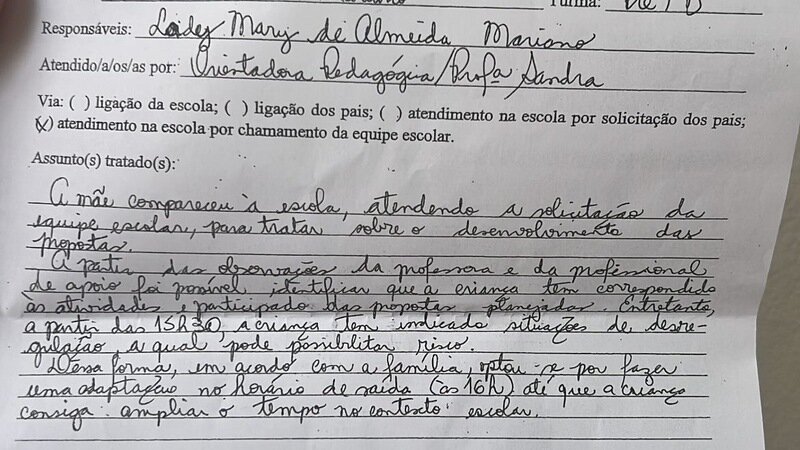 Turma:
Responsáveis: Loidey Mary de Almeida Mariano
Atendido/a/os/as por: Orientadora Pedagógica/Profª Sandra
Via: ( ) ligação da escola; ( ) ligação dos pais; ( ) atendimento na escola por solicitação dos pais;
(X) atendimento na escola por chamamento da equipe escolar.
Assunto(s) tratado(s):
A mãe compareceu à escola, atendendo a solicitação da
equipe escolar, para tratar sobre o desenvolvimento das
propostas.
A partir das observações da professora e da profissional
de apoio foi possível identificar que a criança tem correspondido
às atividades e participado das propostas planejadas. Entretanto,
a partir das 15h30, a criança tem indicado situações de desre-
gulação, a qual pode possibilitar risco.
Dessa forma, em acordo com a família, optou-se por fazer
uma adaptação no horário de saída (às 16h) até que a criança
consiga ampliar o tempo no contexto escolar.